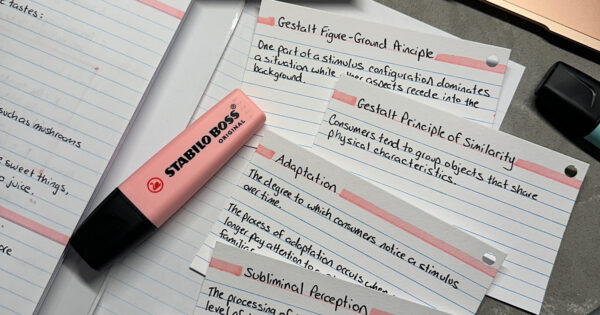 e tastes:
such as mushrooms
sweet things,
juice.
STABILO BOSS®
ORIGINAL
Gestalt Figure-Ground Principle
One part of a stimulus configuration dominates
a situation while aspects recede into the
background.
Gestalt Principle of Similarity
Consumers tend to group objects that share
physical characteristics.
Adaptation
The degree to which consumers notice a stimulus
over time.
The process of adaptation occurs when
longer pay attention to
Subliminal Perception
The processing of
level of